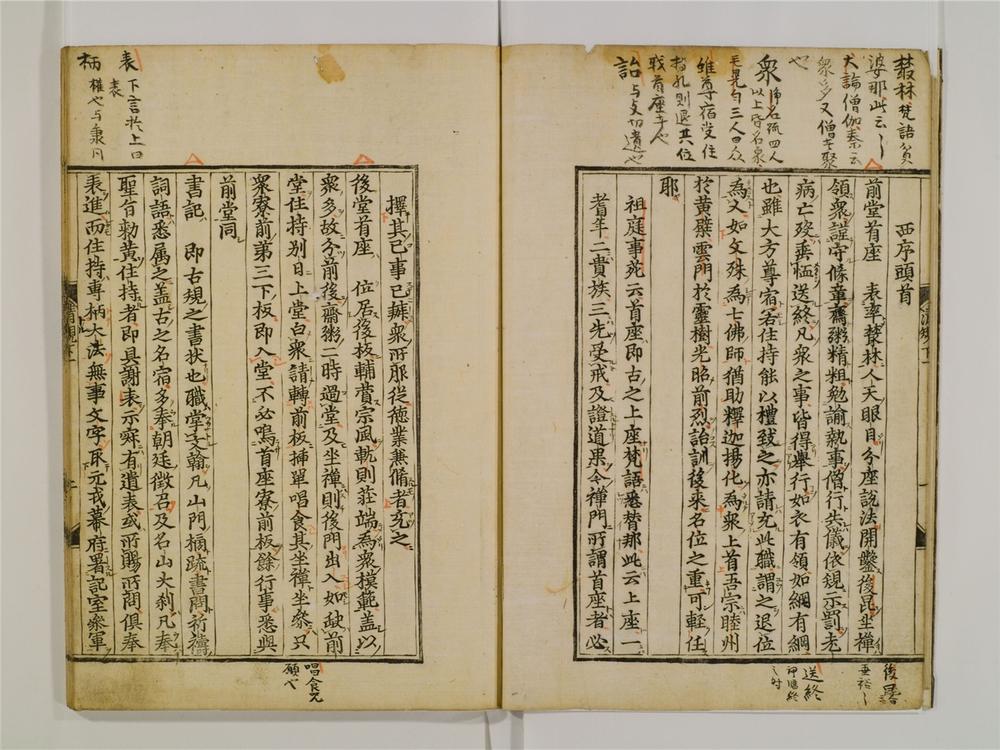 叢林梵語貧
婆那此云〻
大論僧伽秦云
衆多又僧叢聚
也
衆
淨名疏四人
以上皆名衆
毛晃曰三人曰众
雖尊宿受住
持礼則退其位
戰首座寺也
詒与支切遺也
西序頭首
前堂首座　表率叢林人天眼目分座説法開鑿後昆坐禪
領衆謹守條章齋粥精粗勉諭執事僧行失儀依規示罰老
病亡殁垂恤送終凡衆之事皆得舉行如衣有領如綱有綱
也雖大方尊宿若住持能以禮致之亦請充此職謂之退位
為人如文殊為七佛師猶助釋迦揚化為衆上首吾宗睦州
於黄檗雲門於靈樹光昭前烈詒訓後來名位之重可輕任
耶
祖庭事苑云首座即古之上座梵語悉替那此云上座一
耆年二貴族三先受戒及證道果今禪門所謂首座者必
後昆
垂裕〻
送終
擇其已事已辨衆所服從德業兼備者充之
後堂首座　位居後板輔賛宗風軌則莊端為衆模範盖以
衆多故分前後齋粥二時過堂及坐禪則後門出入如缺前
堂住持别日上堂白衆請轉前板挿單唱食其坐禪坐參只
衆寮前第三下板即入堂不必鳴首座寮前板餘行事悉與
前堂同
書記　即古規之書状也職掌文翰凡山門榜疏書問祈禱
詞語悉属之盖古之名宿多奉朝廷徴召及名山大刹凡奉
聖旨勅黄住持者即具謝表示寂有遺表或所賜所問俱奉
表進而住持專柄大法無事文字取元戎幕府署記室參軍
表
下言於上曰
表
柄
權也与秉同
唱食咒
願也